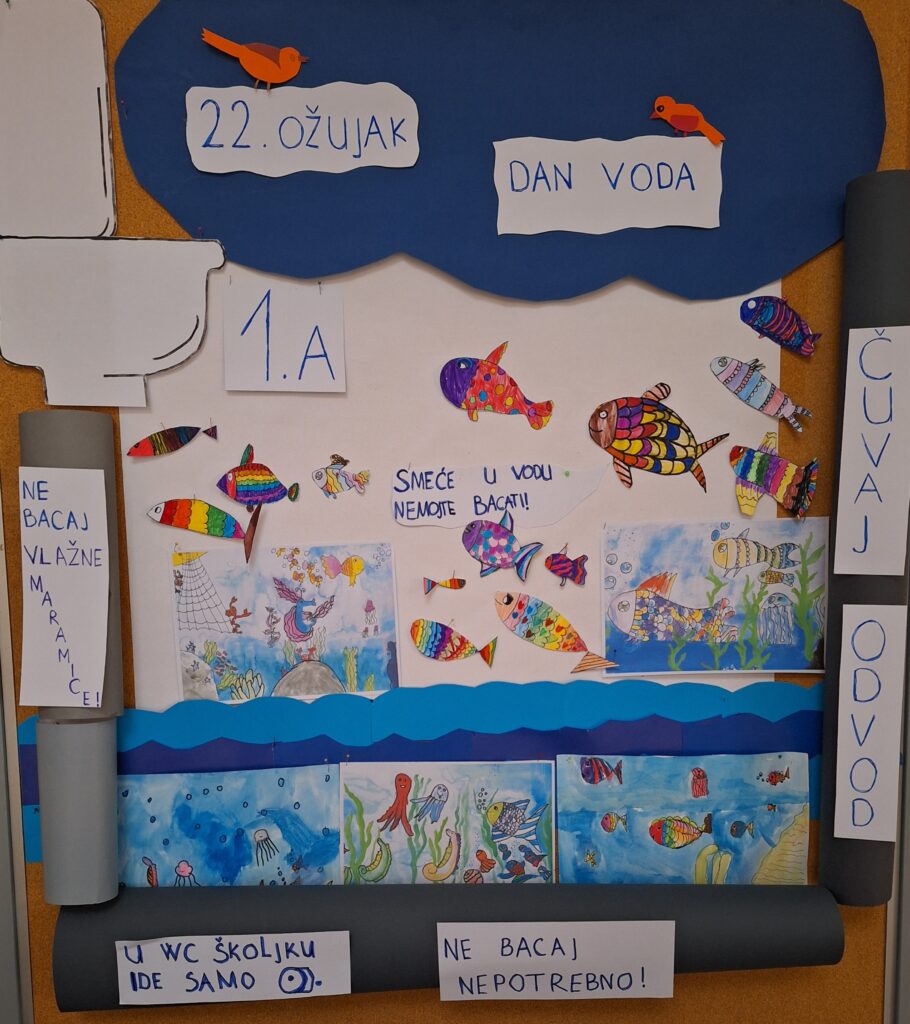 22. OŽUJAK
DAN VODA
1.A
SMEĆE U VODU
NEMOJTE BACATI!
NE
BACAJ
VLAŽNE
MARAMICE!
ČUVAJ
ODVOD
U WC ŠKOLJKU
IDE SAMO .
NE BACAJ
NEPOTREBNO!